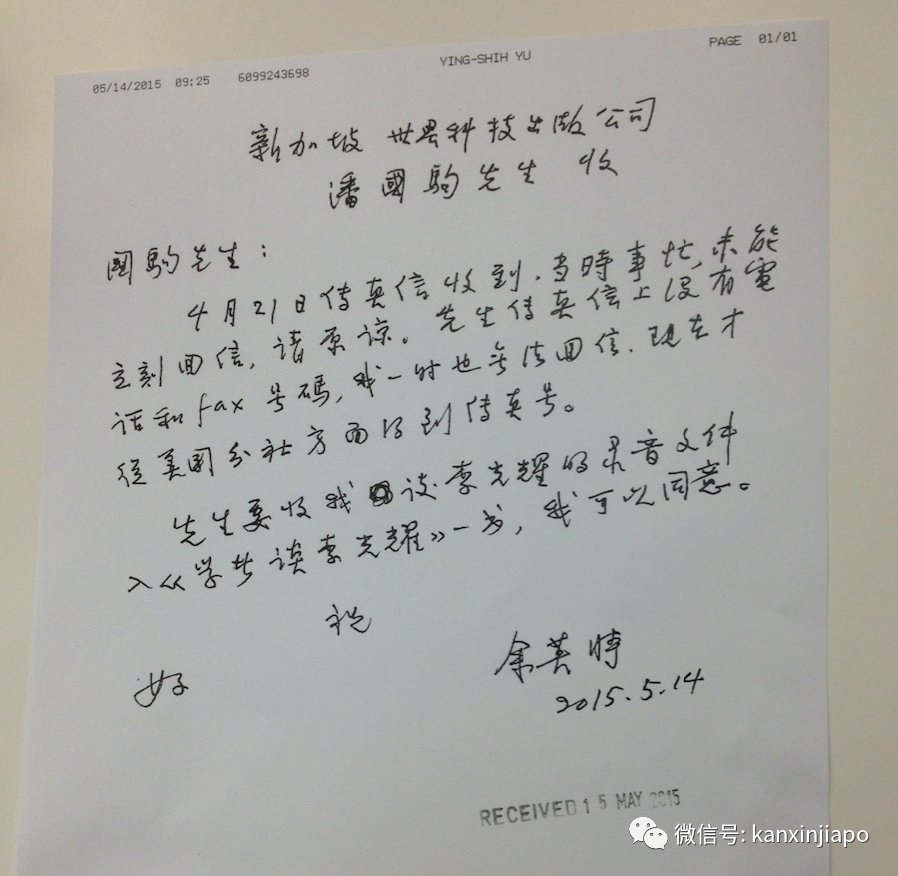 05/14/2015 09:25 6099243698 YING-SHIH YU PAGE 01/01
新加坡 世界科技出版公司
潘國駒先生 收
國駒先生：
4月21日传真信收到，当時事忙，未能
立刻回信，请原谅。先生传真信上没有電
话和 fax 号碼，我一时也无法回信，现在才
從美国分社方面得到传真号。
先生要收我谈李光耀的录音文件
入《学者谈李光耀》一书，我可以同意。
祝
好
余英時
2015.5.14
RECEIVED 15 MAY 2015
微信号: kanxinjiapo